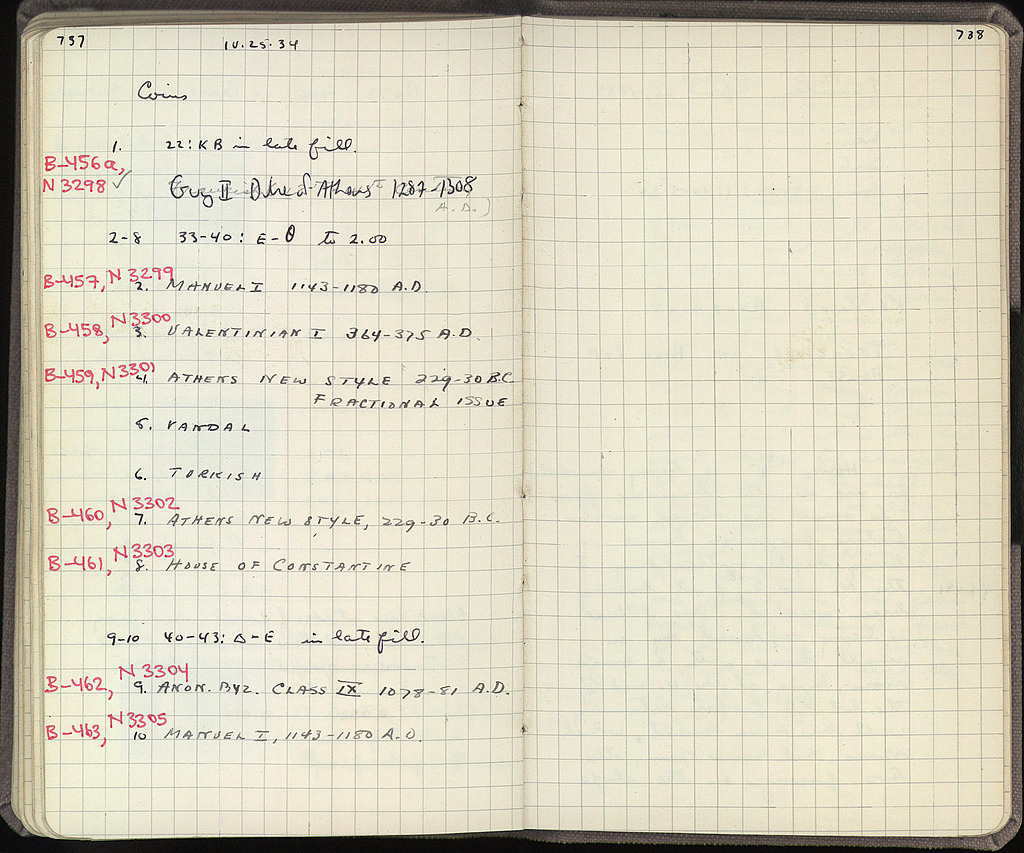 737
IV.25.34
738
Coins
1. 22: KB in late fill.
B-456a,
N 3298 ✓
Guy II Duke of Athens 1287-1308
A.D.)
2-8 33-40: E-Θ to 2.00
B-457, N 3299
2. MANUEL I 1143-1180 A.D.
B-458, N 3300
3. VALENTINIAN I 364-375 A.D.
B-459, N 3301
4. ATHENS NEW STYLE 229-30 B.C.
FRACTIONAL ISSUE
5. VANDAL
6. TURKISH
B-460, N 3302
7. ATHENS NEW STYLE, 229-30 B.C.
B-461, N 3303
8. HOUSE OF CONSTANTINE
9-10 40-43: Δ-E in late fill.
B-462, N 3304
9. ANON. BYZ. CLASS IX 1078-81 A.D.
B-463, N 3305
10 MANUEL I, 1143-1180 A.D.